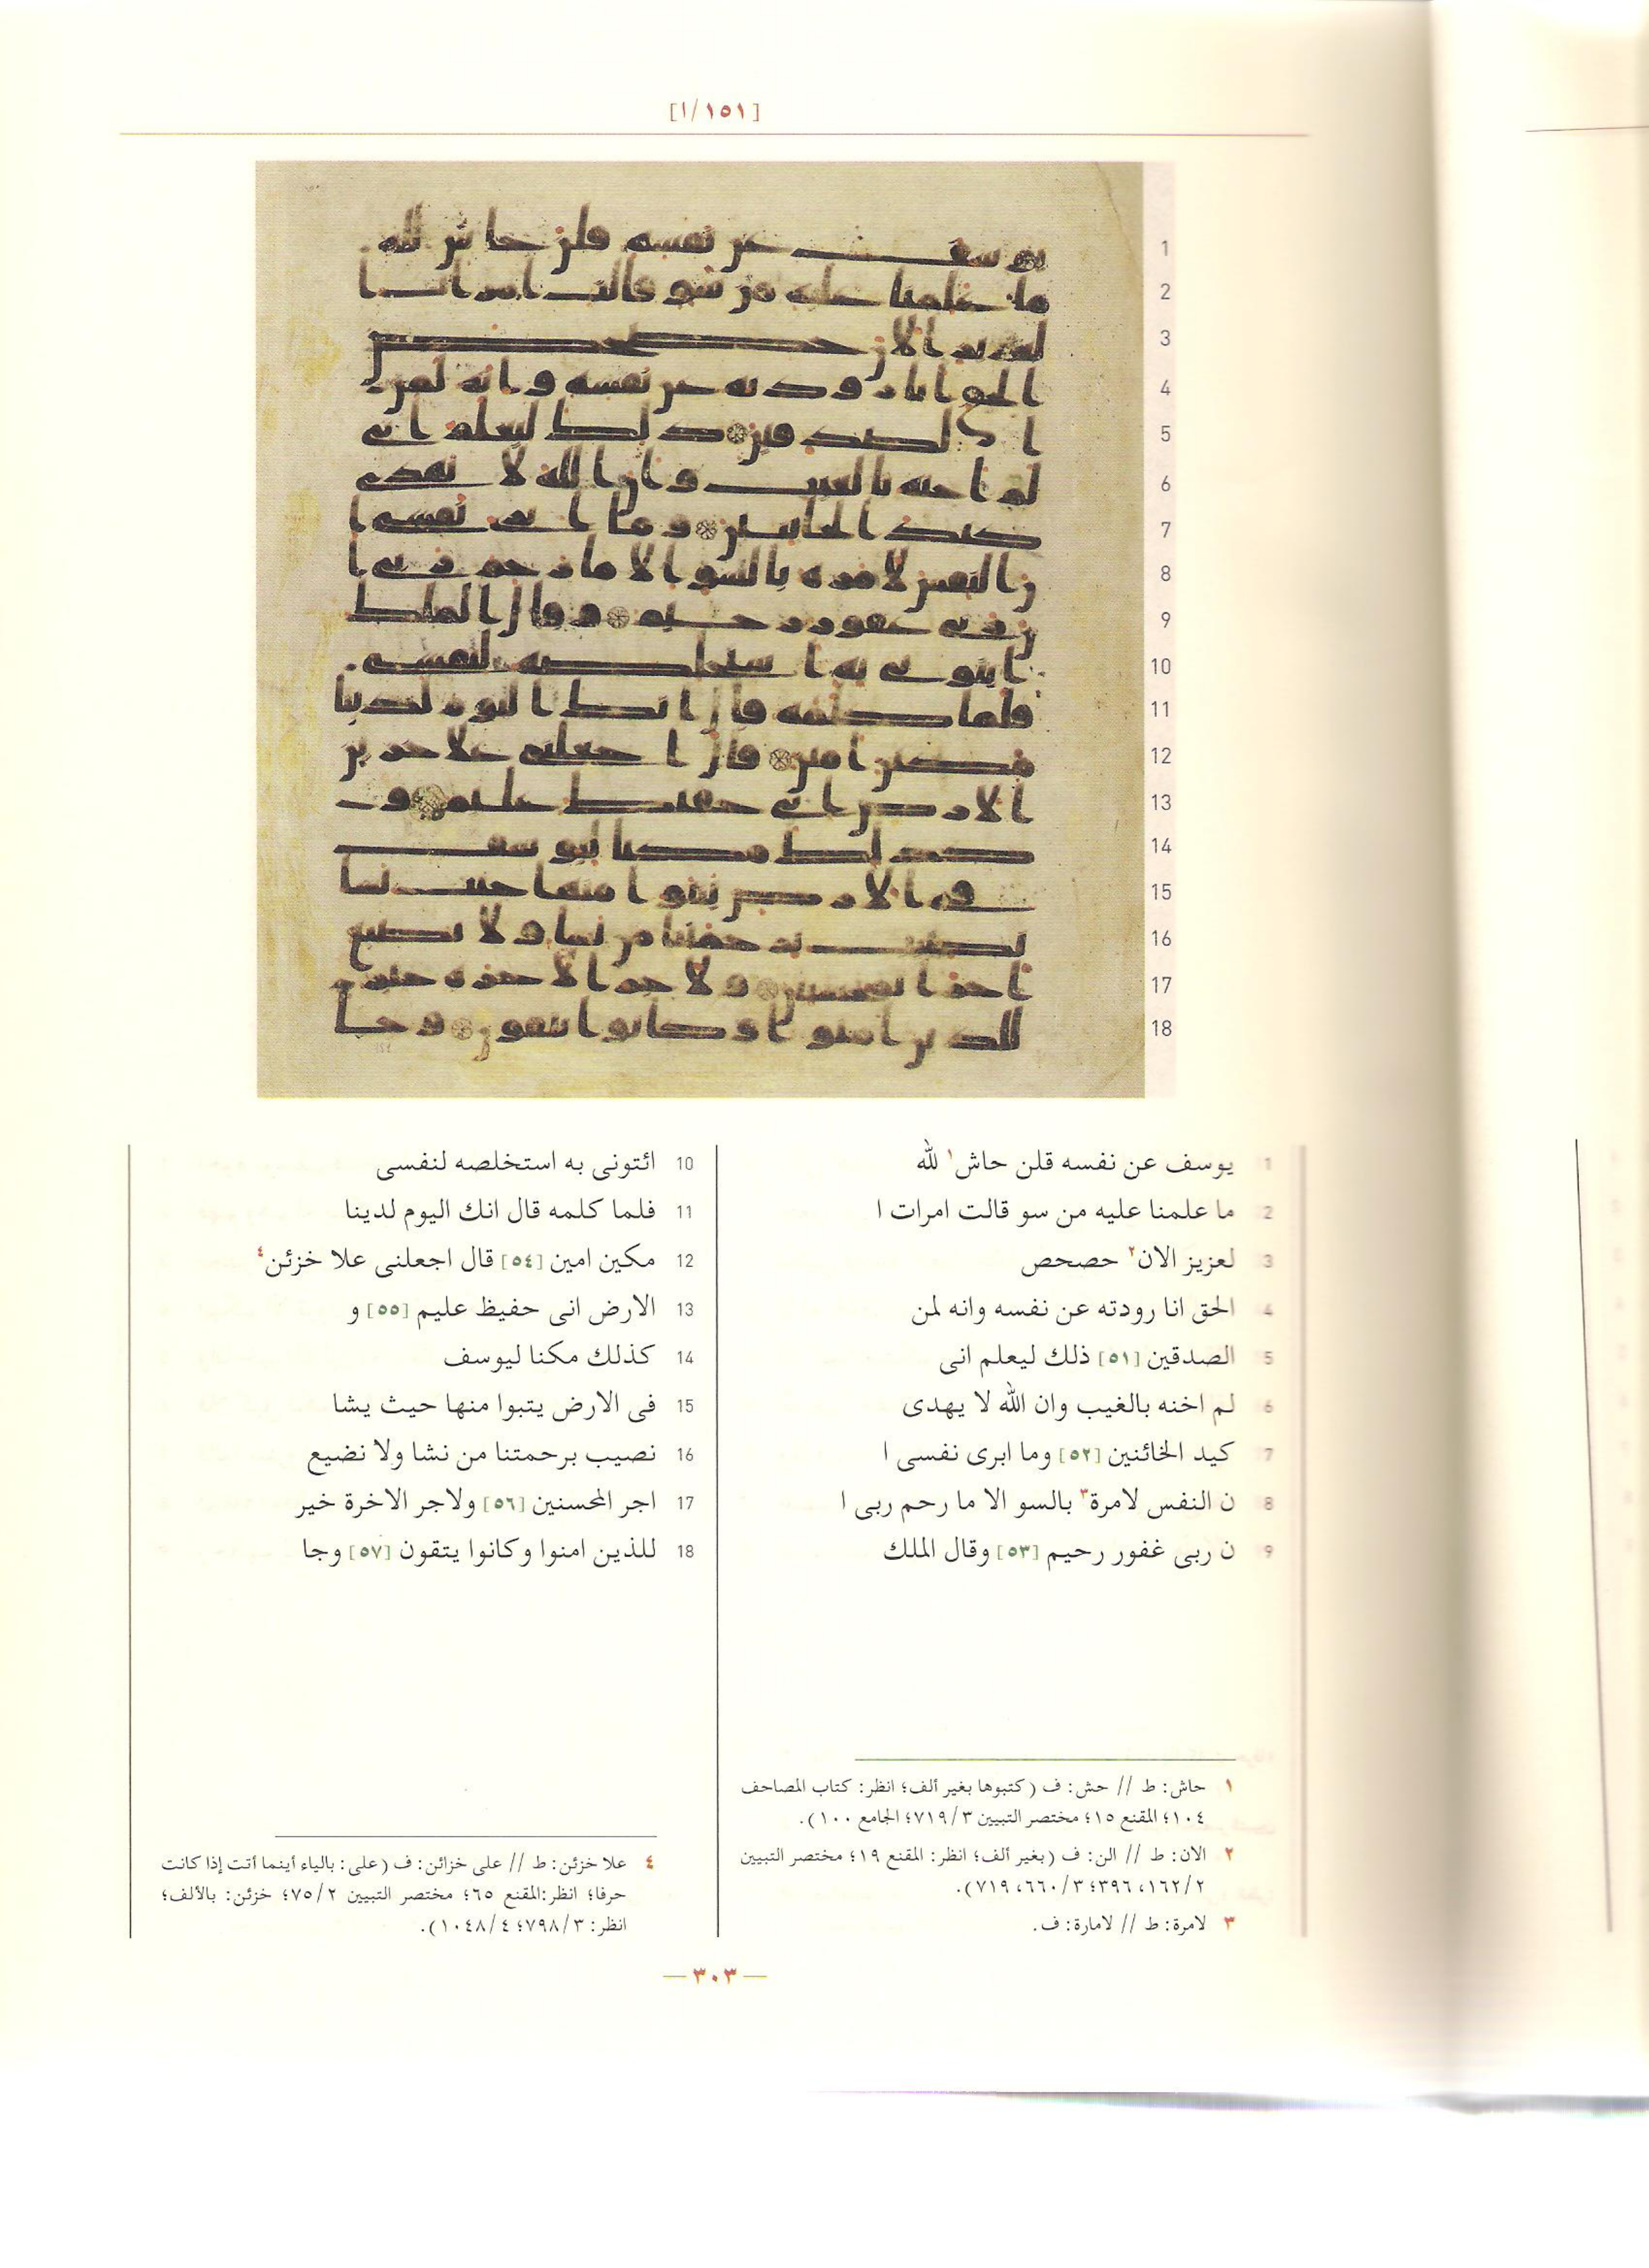 [١/١٥١]
1 يوسف عن نفسه قلن حاش١ لله
2 ما علمنا عليه من سو قالت امرات ا
3 لعزيز الان٢ حصحص
4 الحق انا رودته عن نفسه وانه لمن
5 الصدقين [٥١] ذلك ليعلم انى
6 لم اخنه بالغيب وان الله لا يهدى
7 كيد الخائنين [٥٢] وما ابرى نفسى ا
8 ن النفس لامرة٣ بالسو الا ما رحم ربى ا
9 ن ربى غفور رحيم [٥٣] وقال الملك
10 ائتونى به استخلصه لنفسى
11 فلما كلمه قال انك اليوم لدينا
12 مكين امين [٥٤] قال اجعلنى علا خزئن٤
13 الارض انى حفيظ عليم [٥٥] و
14 كذلك مكنا ليوسف
15 فى الارض يتبوا منها حيث يشا
16 نصيب برحمتنا من نشا ولا نضيع
17 اجر المحسنين [٥٦] ولاجر الاخرة خير
18 للذين امنوا وكانوا يتقون [٥٧] وجا
١ حاش: ط // حش: ف (كتبوها بغير ألف؛ انظر: كتاب المصاحف
١٠٤؛ المقنع ١٥؛ مختصر التبيين ٧١٩/٣؛ الجامع ١٠٠).
٢ الان: ط // الن: ف (بغير ألف؛ انظر: المقنع ١٩؛ مختصر التبيين
١٦٢/٢، ٣٩٦؛ ٦٦٠/٣، ٧١٩).
٣ لامرة: ط // لامارة: ف.
٤ علا خزئن: ط // على خزائن: ف (على: بالياء أينما أتت إذا كانت
حرفا؛ انظر:المقنع ٦٥؛ مختصر التبيين ٧٥/٢؛ خزئن: بالألف؛
انظر: ٧٩٨/٣؛ ١٠٤٨/٤).
—٣٠٣—